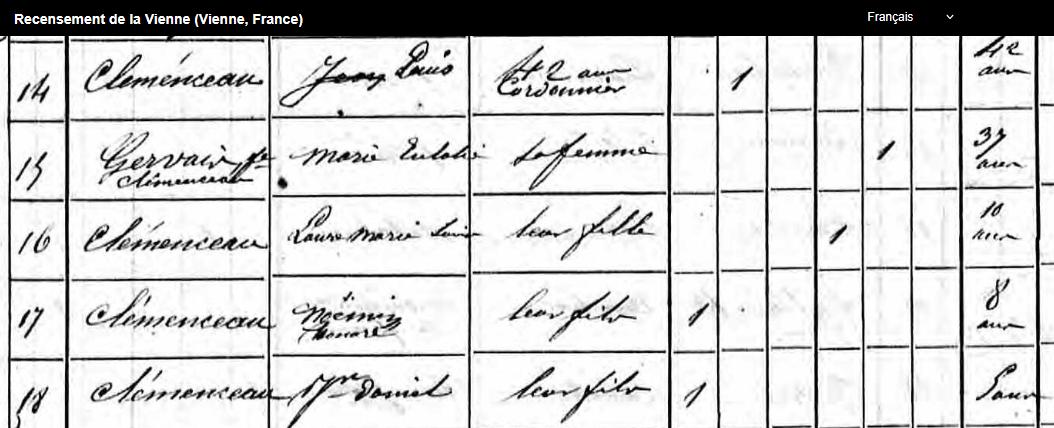 Recensement de la Vienne (Vienne, France)
Français
14 Clemenceau Louis 42 ans Cordonnier 1 42 ans
15 Gervais fe Clémenceau Marie Eulalie sa femme 1 37 ans
16 Clémenceau Laure Marie leur fille 1 10 ans
17 Clémenceau Honoré leur fils 1 8 ans
18 Clémenceau Daniel leur fils 1 5 ans